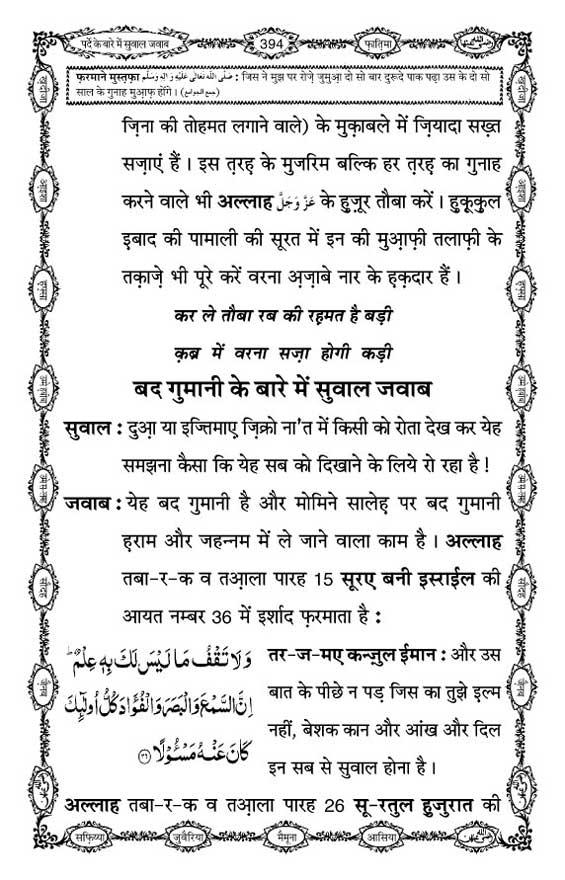 पर्दे के बारे में सुवाल जवाब
394
फ़ातिमा
फ़रमाने मुस्तफ़ा صَلَّى اللّٰهُ تَعَالٰى عَلَيْهِ وَاٰلِهٖ وَسَلَّم : जिस ने मुझ पर रोज़े जुमुआ दो सो बार दुरूदे पाक पढ़ा उस के दो सो
साल के गुनाह मुआ़फ़ होंगे । (جمع الجوامع)
ज़िना की तोहमत लगाने वाले) के मुक़ाबले में ज़ियादा सख़्त
सज़ाएं हैं । इस त़रह़ के मुजरिम बल्कि हर त़रह़ का गुनाह
करने वाले भी अल्लाह عَزَّ وَجَلَّ के हु़ज़ूर तौबा करें । हु़क़ूक़ुल
इ़बाद की पामाली की सूरत में इन की मुआ़फ़ी तलाफ़ी के
तक़ाज़े भी पूरे करें वरना अ़ज़ाबे नार के ह़क़दार हैं ।
कर ले तौबा रब की रह़मत है बड़ी
क़ब्र में वरना सज़ा होगी कड़ी
बद गुमानी के बारे में सुवाल जवाब
सुवाल : दुआ़ या इज्तिमाए़ ज़िक्रो ना'त में किसी को रोता देख कर येह
समझना कैसा कि येह सब को दिखाने के लिये रो रहा है !
जवाब : येह बद गुमानी है और मोमिने सालेह़ पर बद गुमानी
ह़राम और जहन्नम में ले जाने वाला काम है । अल्लाह
तबा-र-क व तआ़ला पारह 15 सूरए बनी इस्राईल की
आयत नम्बर 36 में इर्शाद फ़रमाता है :
وَلَا تَقْفُ مَا لَيْسَ لَكَ بِهٖ عِلْمٌ ؕ
اِنَّ السَّمْعَ وَالْبَصَرَ وَالْفُؤَادَ كُلُّ اُولٰٓئِكَ
كَانَ عَنْهُ مَسْـُٔوْلًا ﴿۳۶﴾
तर-ज-मए कन्ज़ुल ईमान : और उस
बात के पीछे न पड़ जिस का तुझे इ़ल्म
नहीं, बेशक कान और आंख और दिल
इन सब से सुवाल होना है ।
अल्लाह तबा-र-क व तआ़ला पारह 26 सू-रतुल हु़जुरात की
सफ़िय्या
जुवैरिया
मैमूना
आसिया